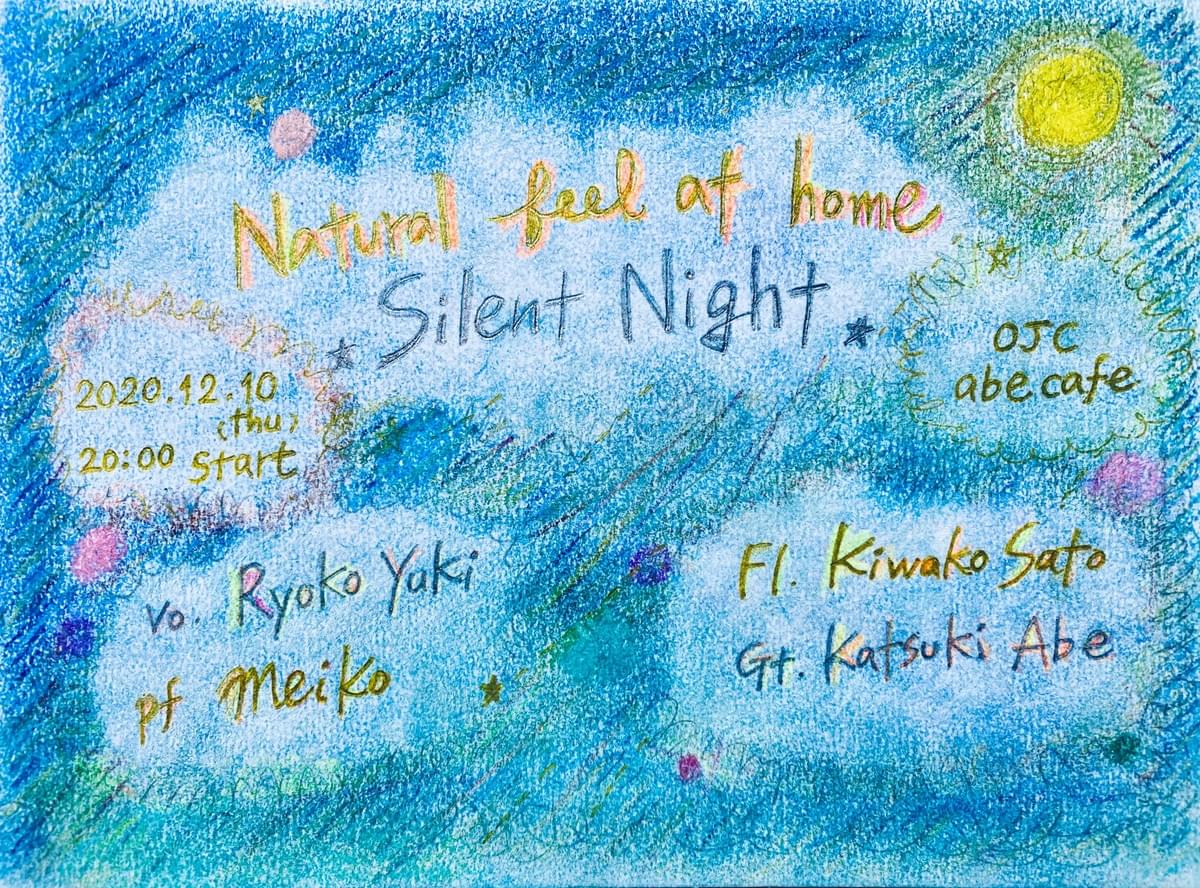 Natural feel at home
Silent Night
2020.12.10
(thu)
20:00 start
OJC
abe.cafe
vo. Ryoko Yuki
pf Meiko
Fl. Kiwako Sato
Gt. Katsuki Abe